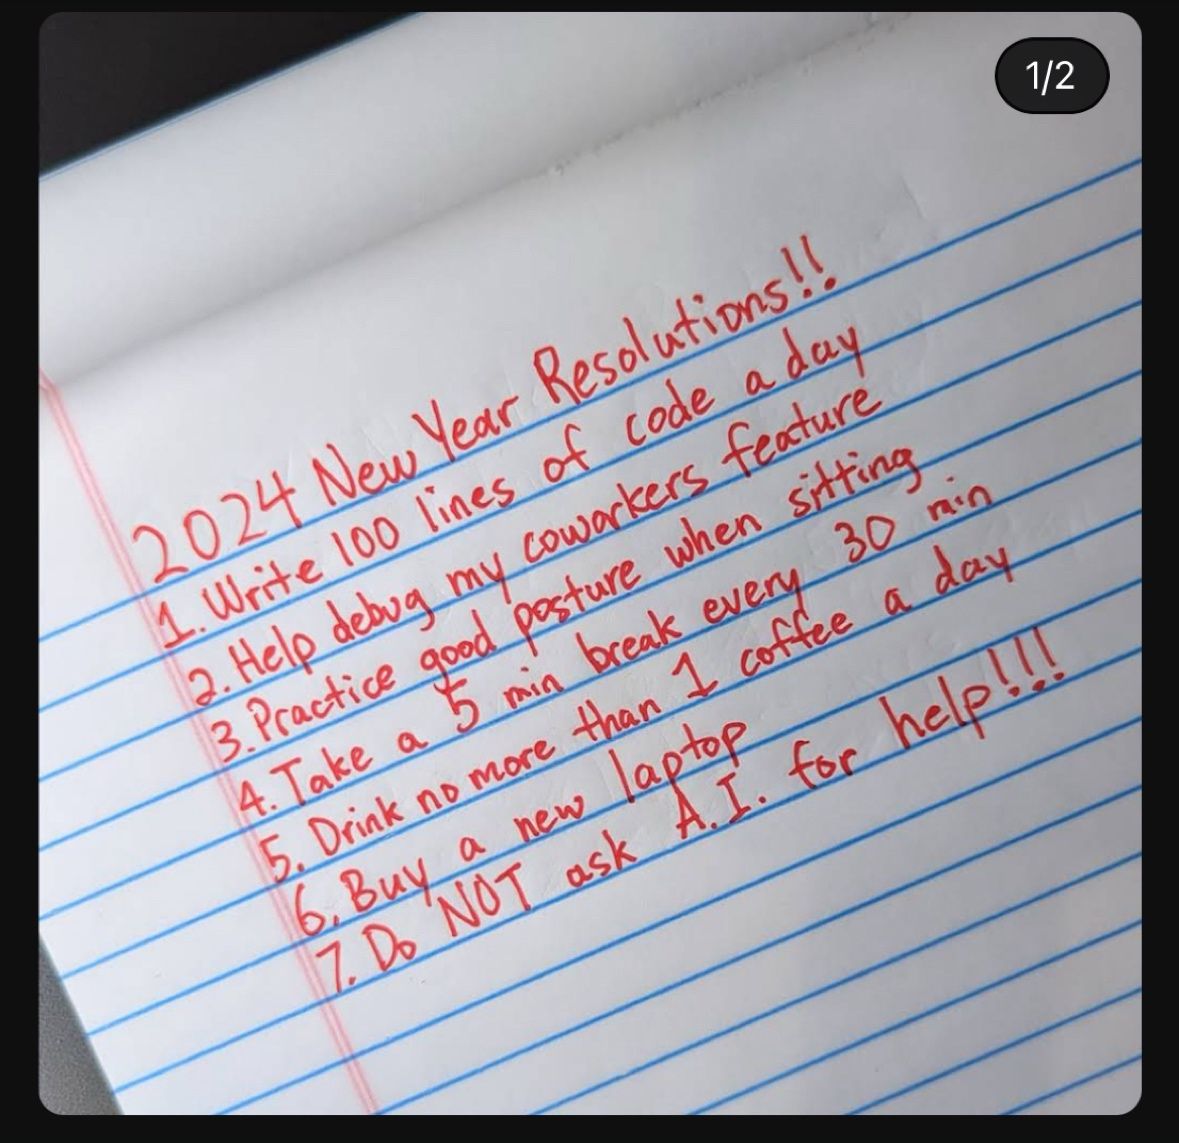 1/2
2024 New Year Resolutions!!
1. Write 100 lines of code a day
2. Help debug my coworkers feature
3. Practice good posture when sitting
4. Take a 5 min break every 30 min
5. Drink no more than 1 coffee a day
6. Buy a new laptop
7. Do NOT ask A.I. for help!!!